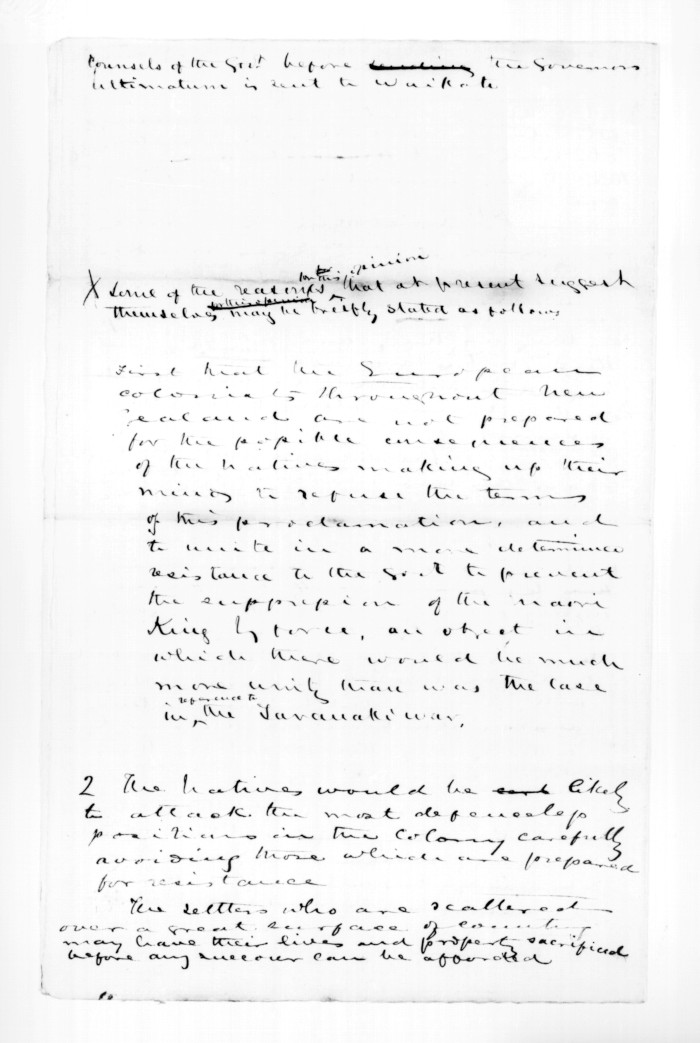 Counsels of the Govt before sending the Governors
Ultimatum is sent to Waikato
for this opinion
X Some of the reasons that at present suggest
for this opinion
themselves may be briefly stated as follows
First that the European
colonists throughout New
Zealand are not prepared
for the possible consequences
of the natives making up their
minds to refuse the terms
of this proclamation, and
to unite in a more determined
resistance to the Govt to prevent
the suppression of the Maori
King by force, an object in
which there would be much
more unity than was the case
in reference to the Taranaki war.
2 The Natives would be likely
to attack the most defenceless
positions in the Colony carefully
avoiding those which are prepared
for resistance
The settlers who are scattered
over a great surface of country
may have their lives and property sacrificed
before any succour can be afforded